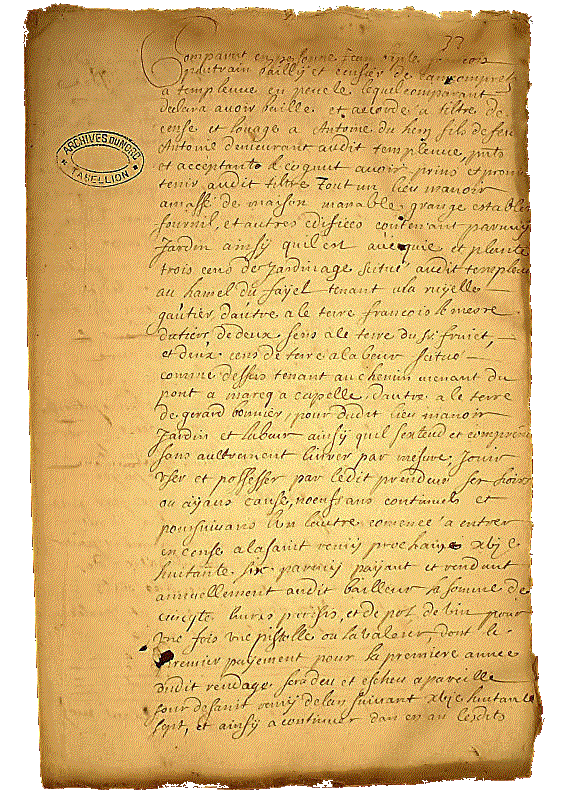 33
Comparut en personne Jean
bailly et
a templeuve en pevele lequel comparant
declara avoir baillé et accordé a tiltre de
cense et louage a Antoine du hem fils de feu
Antoine demeurant audit templeuve, pnt
et acceptant Il cognut avoir prins et promi
tenir audit tiltre Tout un lieu manoir
amassé de maison manable, grange estables
fournil, et autres edifices contenant parmy
Jardin ainsy quil est et planté
trois cens de Jardinage scitué audit templeuve
au hamel du fayel tenant a la ruyelle
gautier, dautre a le terre francois le mesre
de deux sens a le terre du Sr.
et deux cens de terre a labeur scitué
comme dessus tenant au chemin menant du
pont a marcq a capelle, dautre a le terre
de gerard bonnier, pour dudit lieu manoir
Jardin et labeur ainsy quil sextend et comprend
sans aultrement livrer par mesure Jouir
User et possesser par ledit preneur ses hoirs
ou ayans cause, noeuf ans continuels et
poursuivans lun lautre comencé a entrer
en cense a la saint remy prochain xvjc
huitante six parmy payant et rendant
annuellement audit bailleur la somme de
livres parisis, et de pot de vin pour
une fois une pistolle ou la valoeur, dont le
premier payement pour la premiere annee
dudit rendage sera deu et escheu a pareille
jour de saint remy de lan suivant xvjc huitante
sept, et ainsy a continuer dan en an lesdits
ARCHIVES DU NORD
TABELLION